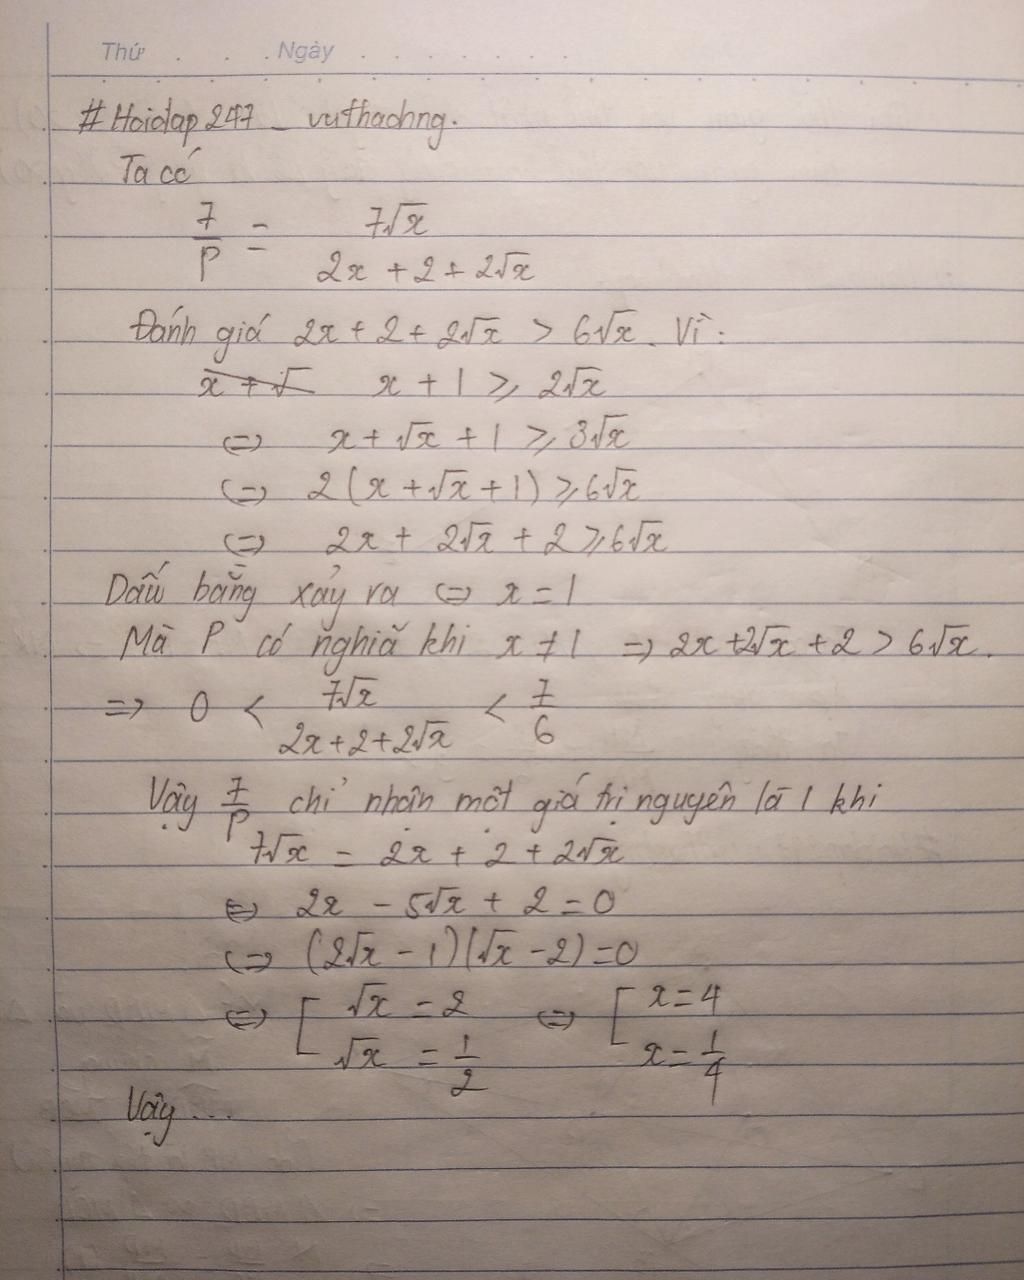 Thứ . . . . Ngày . . . . . . . .
#Hoidap247_vuthachng.
Ta có
7/P = 7√x / (2x + 2 + 2√x)
Đánh giá 2x + 2 + 2√x > 6√x. Vì:
x + 1 ⩾ 2√x
⇔ x + √x + 1 ⩾ 3√x
⇔ 2(x + √x + 1) ⩾ 6√x
⇔ 2x + 2√x + 2 ⩾ 6√x
Dấu bằng xảy ra ⇔ x = 1
Mà P có nghĩa khi x ≠ 1 ⇒ 2x + 2√x + 2 > 6√x.
⇒ 0 < 7√x / (2x + 2 + 2√x) < 7/6
Vậy 7/P chỉ nhận một giá trị nguyên là 1 khi
7√x = 2x + 2 + 2√x
⇔ 2x - 5√x + 2 = 0
⇔ (2√x - 1)(√x - 2) = 0
⇔ [ √x = 2 ⇔ [ x = 4
√x = 1/2 x = 1/4
Vậy ...